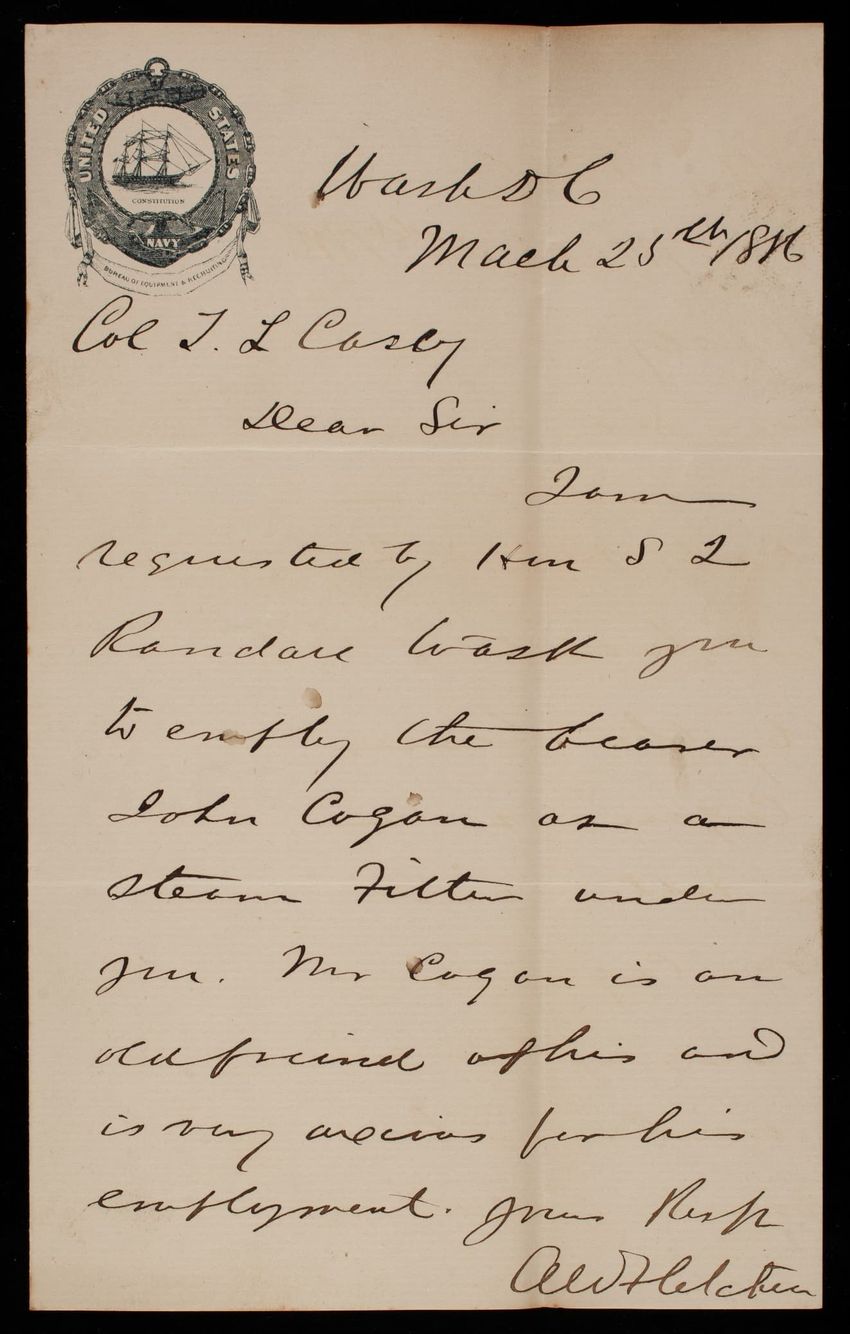 UNITED STATES
CONSTITUTION
NAVY
BUREAU OF EQUIPMENT & RECRUITING
Wash D C
Mach 25th
Col T. L Casey
Dear Sir
I am
requested by Hon S J
Randall to ask you
to employ the bearer
John Cogan as a
steam Fitter under
you. Mr Cogan is an
old freind of his and
is very anxious for his
employment. Yours Resp
A W Fletcher